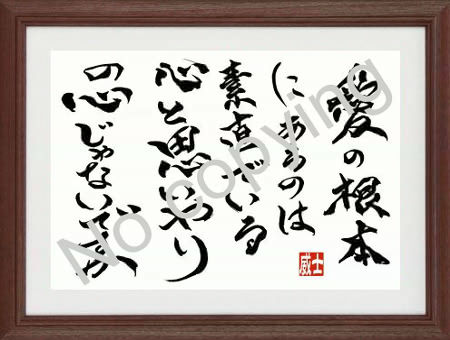 恋愛の根本
にあるのは
素直でいる
心と思いやり
の心じゃないですか
威士
No copying